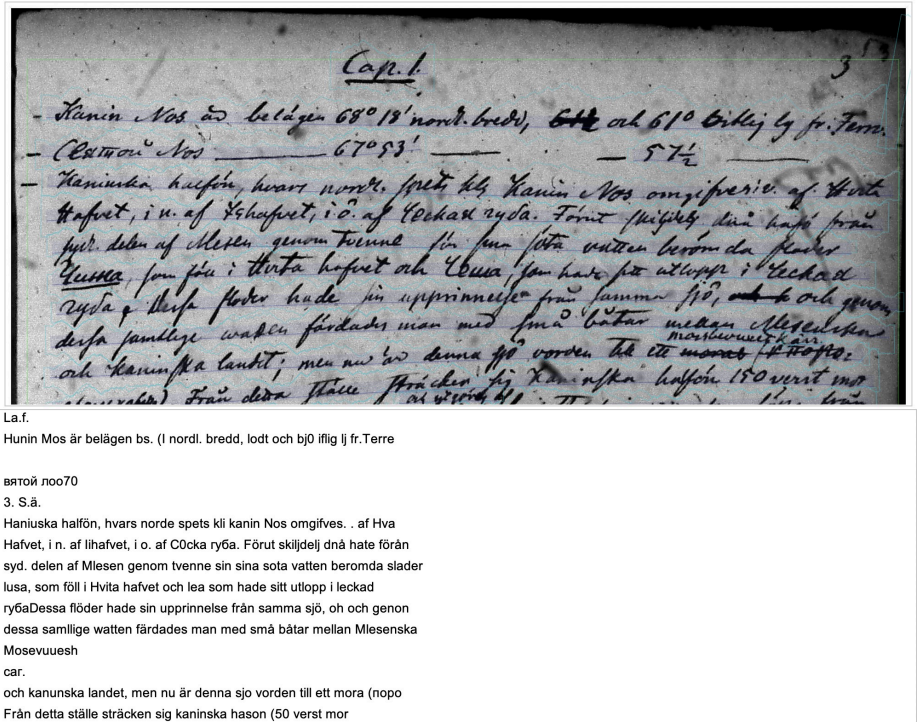 Cap. 1. 3
- Kanin Nos är belägen 68° 18' nordl. bredd, och 61° lg fr. Ferro.
- Святой Nos ——— 67° 53' ——— — 57½ ———
- Kaninska halfön, hvars nordl. spets Kanin Nos omgifves i v. af Hvita
Hafvet, i n. af Ishafvet, i ö. af Ческая губа. Förut skiljdes dnå halfö från
syd. delen af Mesen genom tvenne för sina söta vatten berömda floder
Чижа, som föll i Hvita hafvet och Чеша, som hade sitt utlopp i Ческая
губа. Dessa floder hade sin upprinnelse från samma sjö, och genom
dessa samtlige watten färdades man med små båtar mellan Mesenska
och Kaninska landet; men nu är denna sjö vorden till ett moras
Från detta ställe sträcker sig Kaninska halfön 150 verst mot
La.f.
Hunin Mos är belägen bs. (I nordl. bredd, lodt och bj0 iflig lj fr.Terre
вятой лоо70
3. S.ä.
Haniuska halfön, hvars norde spets kli kanin Nos omgifves. . af Hva
Hafvet, i n. af Iihafvet, i o. af C0cka губа. Förut skiljdelj dnå hate förån
syd. delen af Mlesen genom tvenne sin sina sota vatten beromda slader
lusa, som föll i Hvita hafvet och lea som hade sitt utlopp i leckad
губаDessa flöder hade sin upprinnelse från samma sjö, oh och genon
dessa samllige watten färdades man med små båtar mellan Mlesenska
Mosevuuesh
car.
och kanunska landet, men nu är denna sjo vorden till ett mora (поро
Från detta ställe sträcken sig kaninska hason (50 verst mor